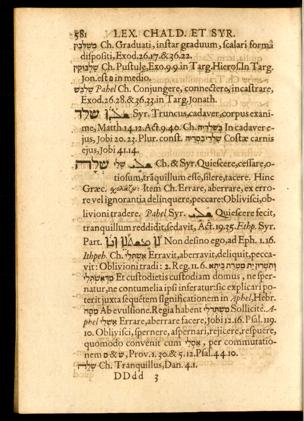 581 LEX. CHALD. ET SYR.
Ch. Graduati, instar graduum, scalari formâ
dispositi, Exod.26.17.& 36.22.
Ch. Pustulę, Exo.9.9 in Targ. Hieros. In Targ.
Jon. est ס in medio.
שלבש Pahel Ch. Conjungere, connectere, incastrare,
Exod.26.28.& 36.33.in Targ. Jonath.
שלד Syr. Truncus, cadaver, corpus exani-
me, Matth.14.12. Act.9.40. Ch. In cadaver e-
jus, Job. 20.23. Plur. const. Costæ carnis
ejus, Job 41.14.
שלה שלי Ch. & Syr. Quiescere, cessare, o-
tiosum, trãquillum esse, silere, tacere. Hinc
Græc. Item Ch. Errare, aberrare, ex erro-
re vel ignorantia delinquere, peccare: Oblivisci, ob-
livioni tradere. Pahel Syr. Quiescere fecit,
tranquillum reddidit, sedavit, Act. 19.35. Ethp. Syr.
Part. Non desino ego, ad Eph. 1.16.
Ithpeh. Ch. Erravit, aberravit, deliquit, pecca-
vit: Oblivioni tradi: 2. Reg. 11. 6.
Et custodietis custodiam domus, ne sper-
natur, ne contumelia ipsi inferatur: sic explicari po-
terit juxta sequẽtem significationem in Aphel, Hebr.
מסח Ab evulsione. Regia habent Sollicitè. A-
phel אשלי Errare, aberrare facere, Job 12.16. Psal. 119.
10. Oblivisci, spernere, aspernari, rejicere, respuere,
quomodo convenit cum אסלי, per commutatio-
nem ש & ס, Prov. 1.30. & 5.12. Psal. 44.10.
Ch. Tranquillus, Dan. 4.1.
DDdd 3